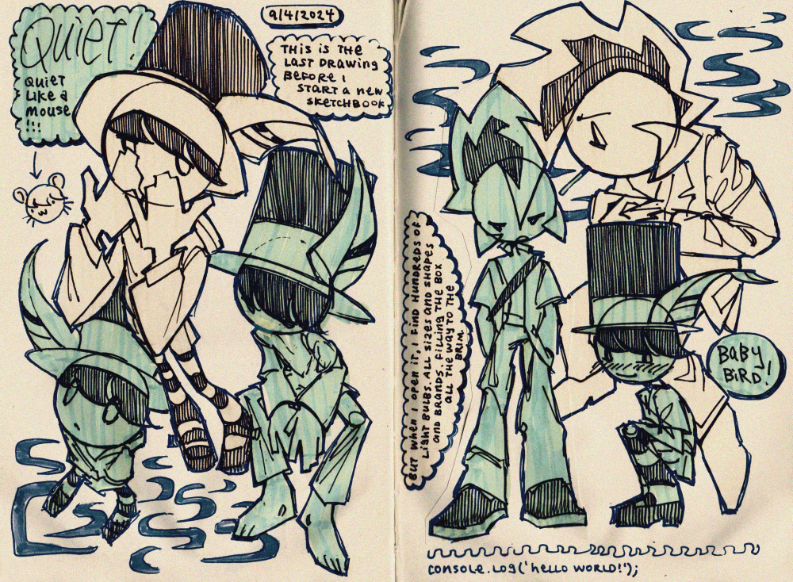 QUiET!
QUiET
LiKE a
mouse
!!!
9/4/2024
THiS iS THE
LAST DRawiNG
BEFORE i
START a NEW
SKETCHBOOK
BUT WHEN i OPEN iT, i FiND HUNDREDS OF
LiGHT BULBS. ALL SiZES aND SHaPES
aND BRaNDS. FiLLiNG THE BOX
aLL THE WaY TO THE
BRiM.
BaBY
BiRD!
CONSOLE.LOG('HELLO WORLD!');